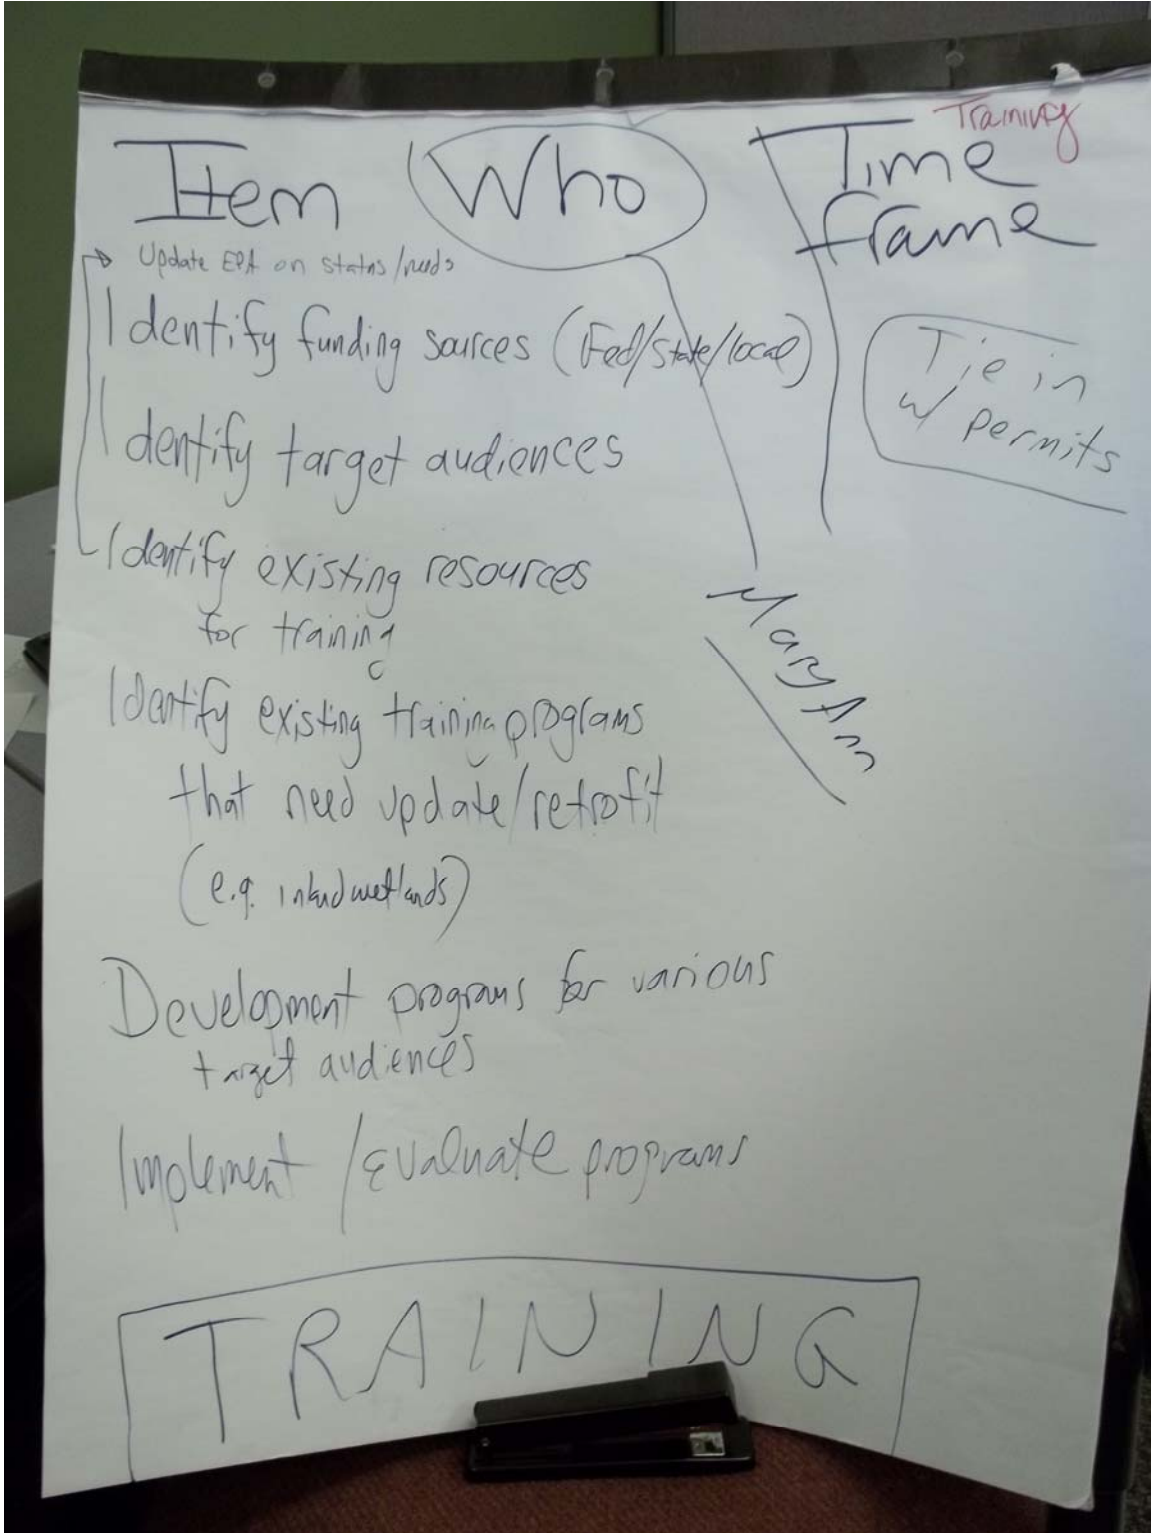 Training
Item Who Time
frame
Update EPA on status/needs
Identify funding sources (Fed/State/local)
Tie in
w/ permits
Identify target audiences
Identify existing resources
for training
Mary Ann
Identify existing training programs
that need update/retrofit
(e.g. inland wetlands)
Development programs for various
target audiences
Implement /Evaluate programs
TRAINING